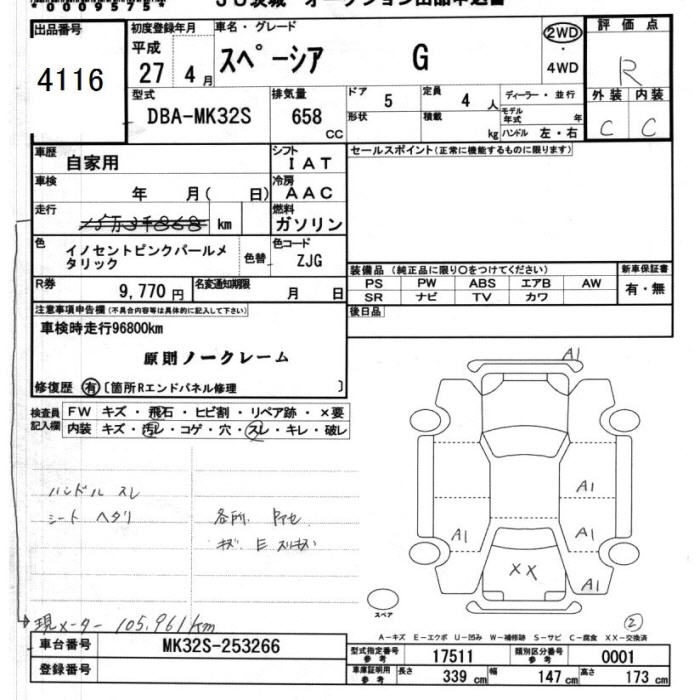 0009575
JU茨城 オークション出品申込書
出品番号 4116
初度登録年月 平成 27 4月
車名・グレード スペーシア G
2WD・4WD
評価点 R
外装 C 内装 C
型式 DBA-MK32S
排気量 658 CC
ドア 5 定員 4 人 ディーラー・並行
形状 積載 kg モデル年式 年 ハンドル 左・右
車歴 自家用
シフト IAT
セールスポイント(正常に機能するものに限ります)
車検 年 月( 日)
冷房 AAC
走行 km
燃料 ガソリン
色 イノセントピンクパールメタリック
色替
色コード ZJG
装備品 (純正品に限り○をつけてください) 新車保証書
PS PW ABS エアB AW 有・無
SR ナビ TV カワ
R券 9,770 円 名変通知期限 月 日
後日品
注意事項申告欄(不具合内容等は具体的に記入して下さい)
車検時走行96800km
原則ノークレーム
修復歴 有 〔箇所Rエンドパネル修理 〕
検査員記入欄
FW キズ・飛石・ヒビ割・リペア跡・×要
内装 キズ・汚レ・コゲ・穴・スレ・キレ・破レ
A1
ハンドル スレ
シート ヘタリ
各所
A1
A1
A1
A1
A1
XX
スペア
②
現メーター 105,961km
A-キズ E-エクボ U-凹み W-補修跡 S-サビ C-腐食 XX-交換済
車台番号 MK32S-253266
型式指定番号 参考 17511 類別区分番号 参考 0001
登録番号
車庫証明用 参考 長さ 339 cm 幅 147 cm 高さ 173 cm